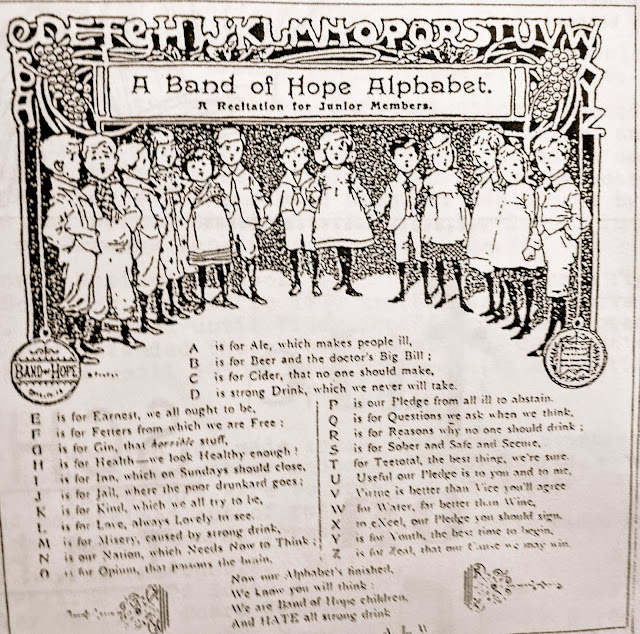 A B C D E F G H I J K L M N O P Q R S T U V W X Y Z
A Band of Hope Alphabet.
A Recitation for Junior Members.
BAND OF HOPE
A is for Ale, which makes people ill,
B is for Beer and the doctor's Big Bill;
C is for Cider, that no one should make,
D is strong Drink, which we never will take.
E is for Earnest, we all ought to be,
F is for Fetters from which we are Free;
G is for Gin, that horrible stuff,
H is for Health—we look Healthy enough!
I is for Inn, which on Sundays should close,
J is for Jail, where the poor drunkard goes;
K is for Kind, which we all try to be,
L is for Love, always Lovely to see.
M is for Misery, caused by strong drink,
N is our Nation, which Needs Now to Think;
O is for Opium, that poisons the brain,
P is our Pledge from all ill to abstain.
Q is for Questions we ask when we think,
R is for Reasons why no one should drink;
S is for Sober and Safe and Secure,
T for Teetotal, the best thing, we're sure.
U Useful our Pledge is to you and to me,
V Virtue is better than Vice you'll agree
W for Water, far better than Wine,
X to eXcel, our Pledge you should sign.
Y is for Youth, the best time to begin,
Z is for Zeal, that our Cause we may win.
Now our Alphabet's finished,
We know you will think;
We are Band of Hope children,
And HATE all strong drink